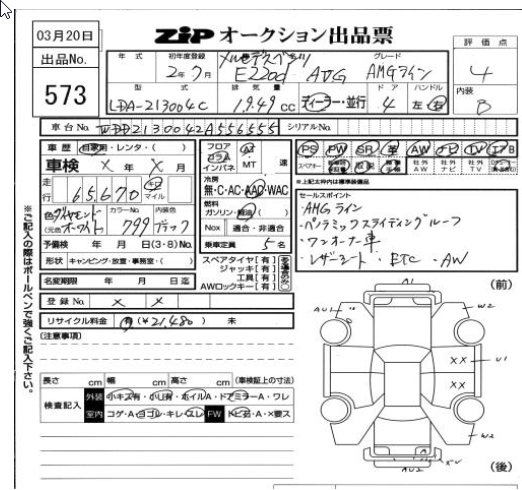 03月20日
ZIP オークション出品票
出品No.
573
年式
初年度登録
2年7月
メルセデスベンツ
E220d AVG
グレード
AMGライン
評価点
4
型式
LDA-213004C
排気量
1949cc
ディーラー・並行
ドア
4
ハンドル
左 右
内装
B
車台No. WDD2130042A556555
シリアルNo.
車歴 自家用・レンタ・( )
車検 × 年 × 月
走行 65670 キロ マイル
色 ダイヤモンド
(元色 ホワイト)
カラーNo.
799
内装色
ブラック
予備検 年 月 日(3・8)No.
形状 キャンピング・放置・事務室・( )
名変期限 年 月 日迄
登録No. × ×
リサイクル料金 有(¥21,480) 未
(注意事項)
フロア コラム インパネ
AT
MT 速
冷房
無・C・AC・AAC・WAC
燃料
ガソリン・軽油( )
Nox 適合・非適合
乗車定員 5名
スペアタイヤ[有]
ジャッキ[有]
工具[有]
AWロックキー[有]
PS PW SR 革 AW ナビ TV エアB
社外AW 社外ナビ 社外TV
セールスポイント
・AMGライン
・パノラミックスライディングルーフ
・ワンオーナー車
・レザーシート ・ETC ・AW
A1
(前)
W2
U1
××
××
W2
(後)
長さ cm 幅 cm 高さ cm (車検証上の寸法)
検査記入
外装 小キズ有・小凹有・ホイルA・ドアミラーA・ワレ
室内 コゲ・A・ヨゴレ・キレ・スレ FW トビ石・A・×要ス
※ご記入の際はボールペンで強くご記入下さい。